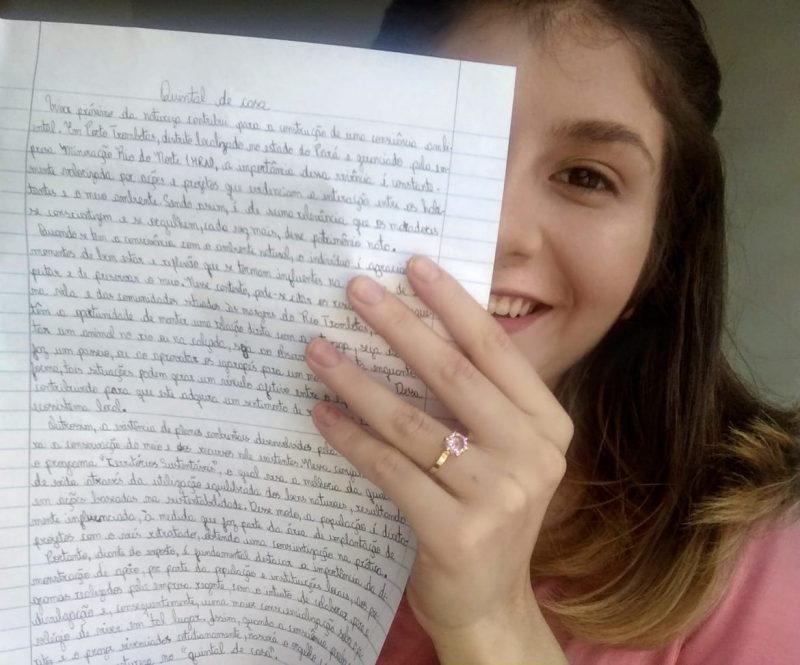 Quintal de casa
Viver próximo da natureza contribui para a construção de uma consciência ambi-
ental. Em Porto Trombetas, distrito localizado no estado do Pará e gerenciado pela em-
presa Mineração Rio do Norte (MRN), a importância dessa vivência é constante-
mente valorizada por ações e projetos que evidenciam a interação entre os habi-
tantes e o meio ambiente. Sendo assim, é de suma relevância que os moradores
se conscientizem e se orgulhem, cada vez mais, desse patrimônio nato.
Quando se tem a convivência com o ambiente natural, o indivíduo é agraciado
momentos de bem estar e reflexão que se tornam influentes na
peitar e de preservar o meio. Nesse contexto, pode-se citar os
na vila e das comunidades situadas às margens do Rio Trombetas, que
têm a oportunidade de manter uma relação direta com a seja
tar um animal no rio ou na calçada, seja ao enquanto
faz um passeio, ou ao aproveitar os igarapés para um Dessa
forma, tais situações podem gerar um vínculo afetivo entre o
contribuindo para que este adquira um sentimento de
ecossistema local.
Outrossim, a existência de planos ambientais desenvolvidos pela
ra a conservação do meio e dos recursos nele existentes. Nessa
o programa "Territórios Sustentáveis", o qual visa a melhoria da qual
de vida através da utilização equilibrada dos bens naturais, resultando
em ações baseadas na sustentabilidade. Desse modo, a população é direta-
mente influenciada, à medida que faz parte da área de implantação de
projetos com o viés retratador, obtendo uma conscientização na prática.
Portanto, diante do exposto, é fundamental destacar a importância da de-
monstração de apoio, por parte da população e instituições locais, aos pro-
gramas realizados pela empresa regente, com o intuito de colaborar para
divulgação e, consequentemente, uma maior conscientização sobre
de viver em tal lugar. Assim, quando a consciência
e o prazer vivenciados cotidianamente, haverá o orgulho
no "quintal de casa".